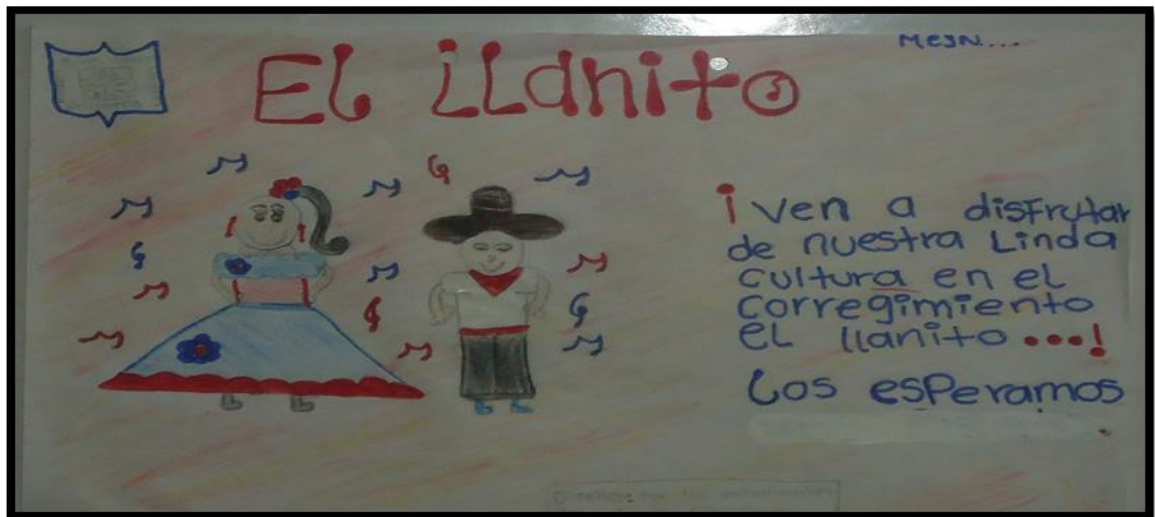 MESN...
El LLanito
¡ven a disFrutar
de nuestra Linda
cultura en el
corregimiento
eL llanito ...!
Los esPeramos